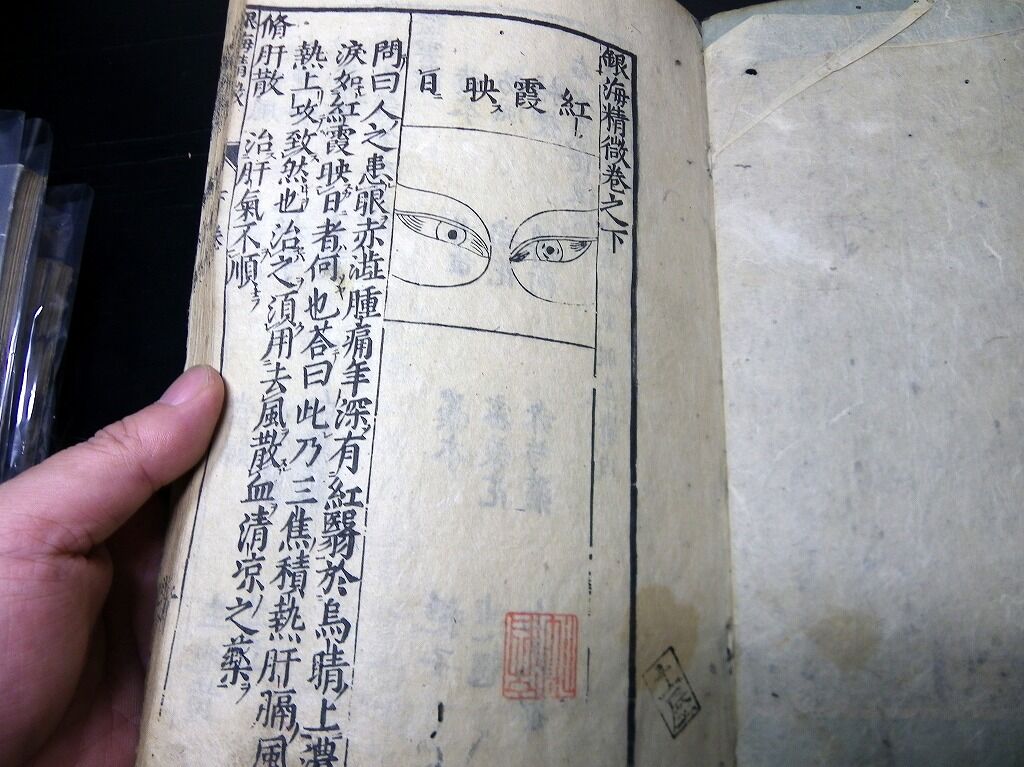 銀海精微卷之下
紅霞映日
問曰人之患眼赤澁腫痛年深有紅翳於烏晴上濃
淚如紅霞映日者何也荅曰此乃三焦積熱肝膈風
熱上攻致然也治之須用去風散血清凉之藥
脩肝散 治肝氣不順